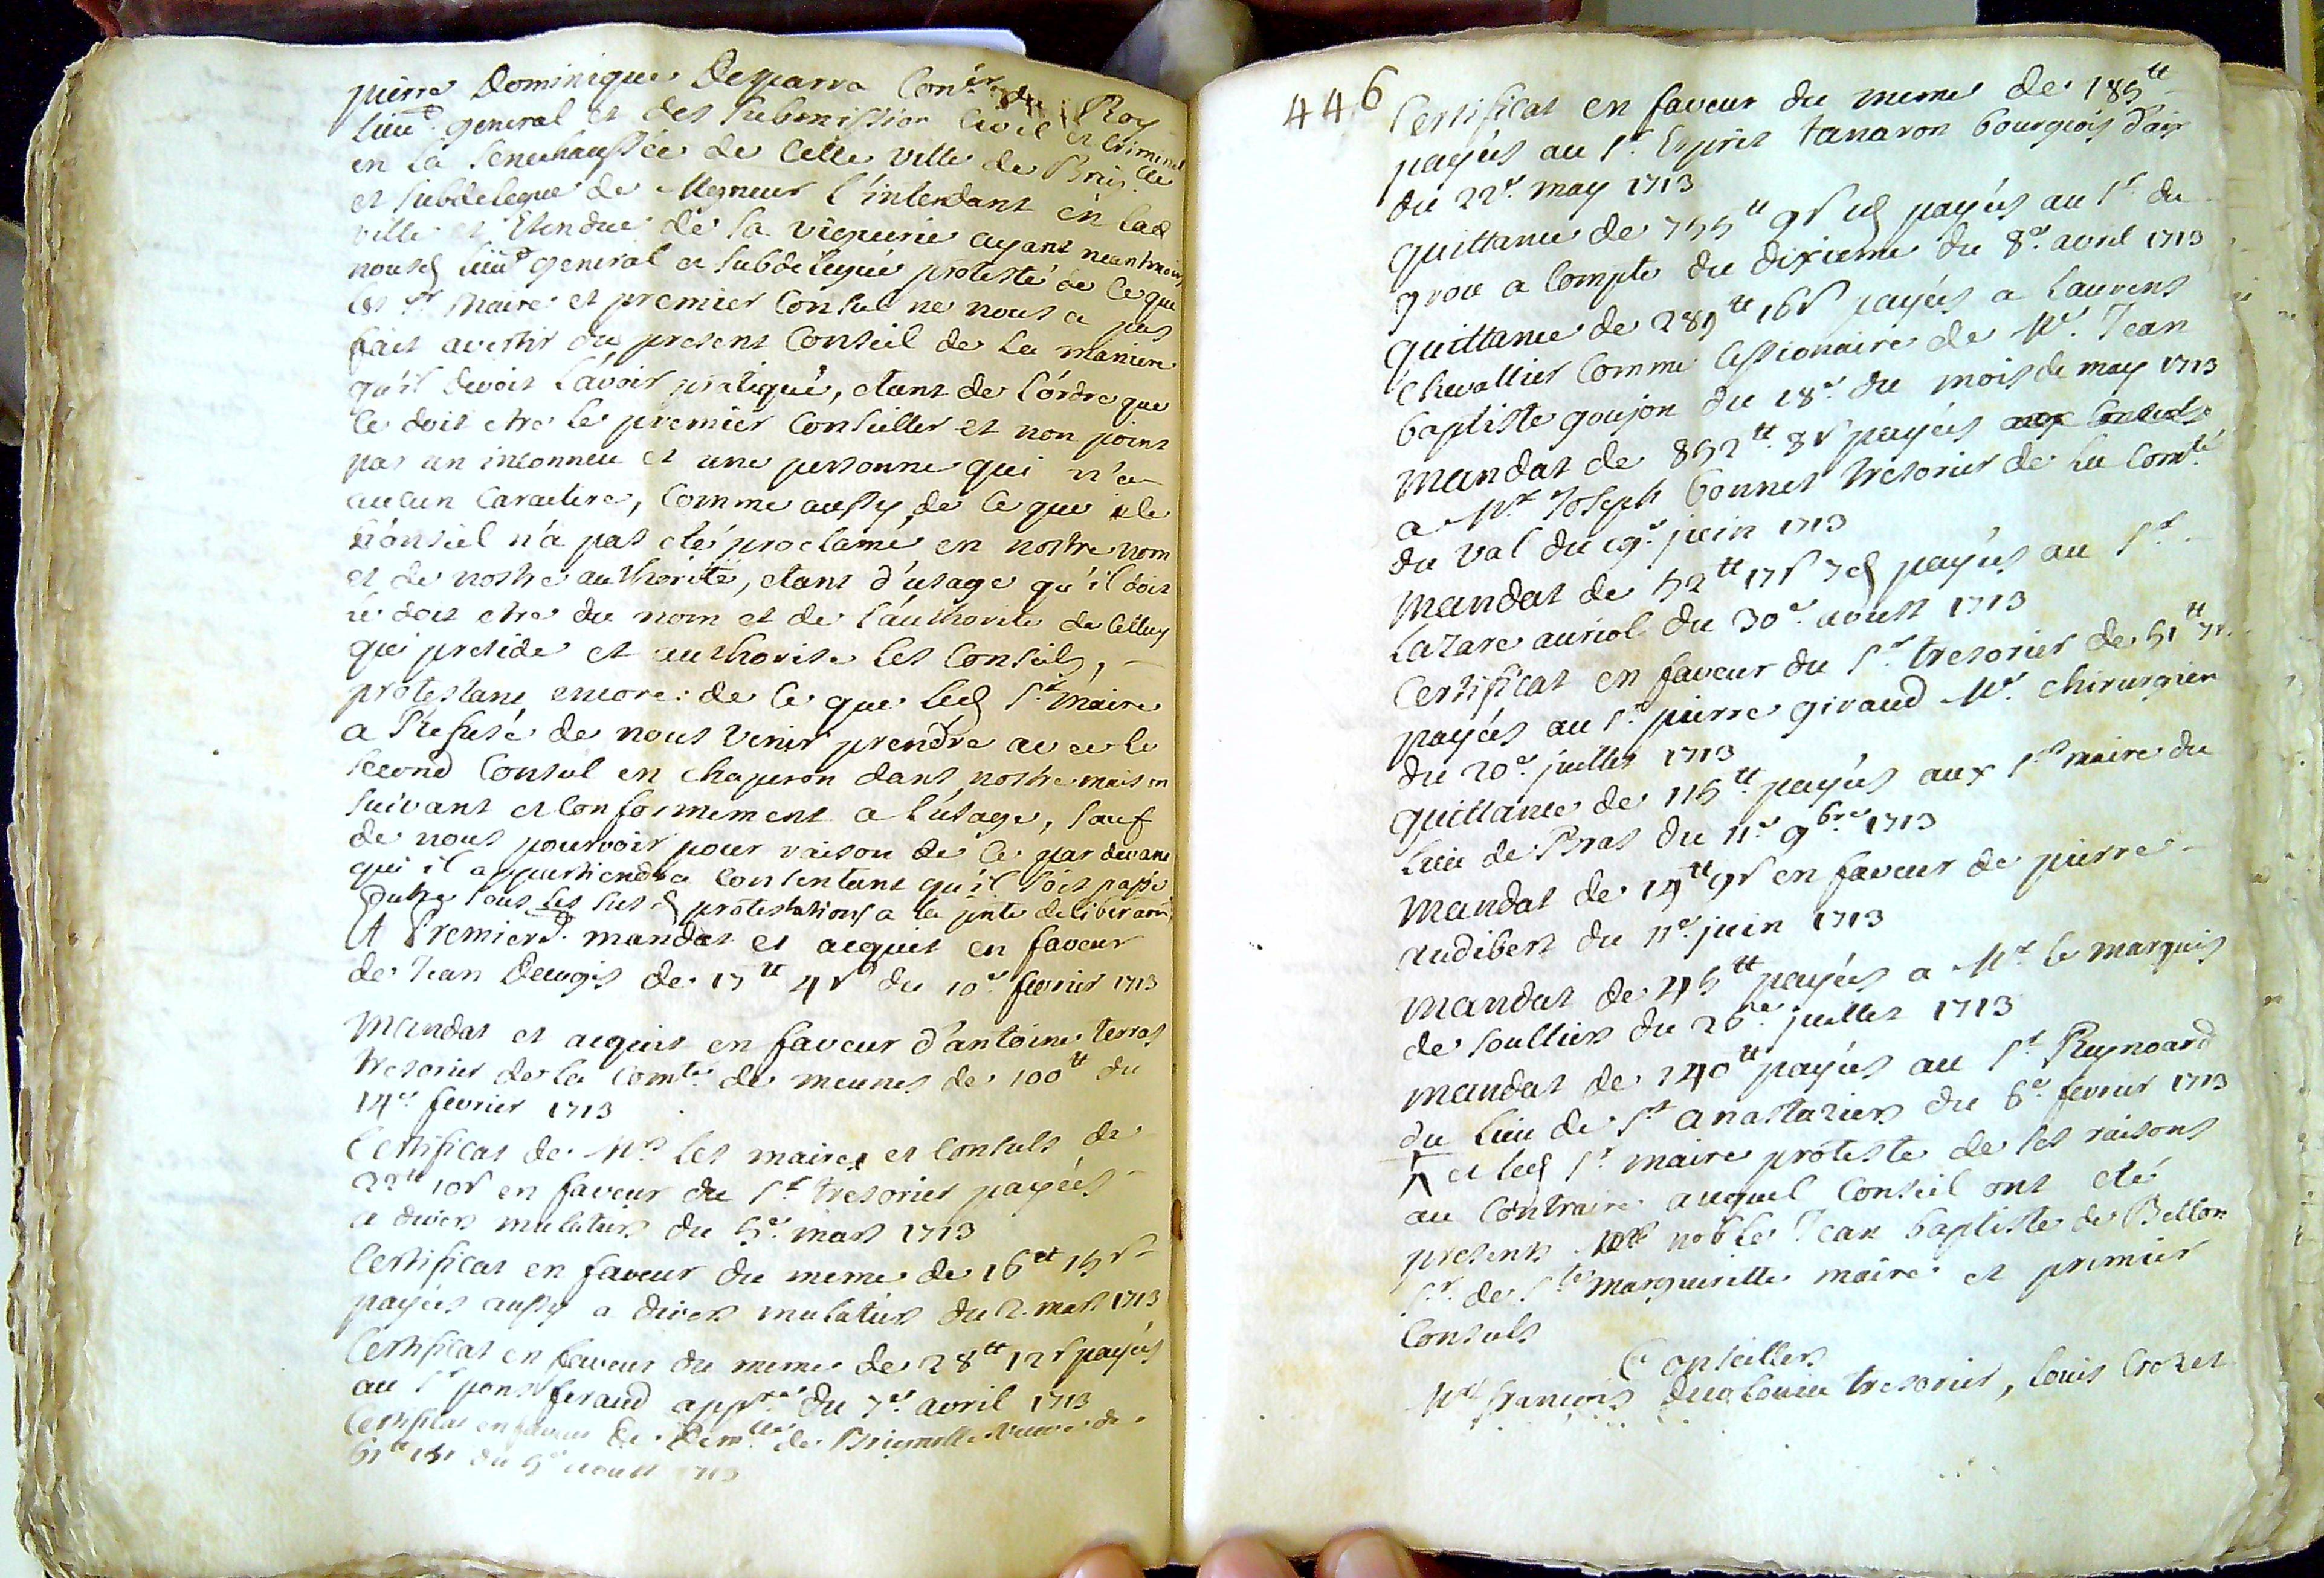 pierre Dominique Desparra Con.er du Roy
Lieut. general et des submission Civil et Criminel
en la senechaussée de cette ville de Brig.lle
et subdelegue de Mgneur l'intendant en lad
ville et Etendue de sa viguerie ayant neantmoins
nousd lieut general et subdelegué protesté de ce que
les Sr maire et premier Consul ne nous a pas
fait avertir du present Conseil de la maniere
qu'il devoit l'avoir pratiqué, etant de l'ordre que
ce doit etre le premier Conseiller et non point
par un inconneu et une personne qui n'a
aucun Caractere, Comme aussy de ce que le
Conseil n'a pas eté proclamé en nostre nom
et de nostre authorité, etant d'usage qu'il doit
le doit etre du nom et de l'authorite de celluy
qui preside et authorise les Conseils,
protestant encore de ce que led Sr maire
a Refusé de nous venir prendre avec le
second Consul en chaperon dans nostre maison
suivant et Conformement a l'usage, sauf
de nous pourvoir pour raison de ce par devant
qui il appartiendra Consentant qu'il soit passé
outre sous les susd protestations a la pnte deliberaõn
Et Premier.t mandat et acquit en faveur
de Jean de 17tt 4s du 10e fevrier 1713
Mandat et acquit en faveur d'antoine terras
tresorier de la Comte de meunes de 100tt du
14e fevrier 1713
Certificat de Mrs les maire et Consuls de
22tt 10s en faveur du Sr tresorier payées
a divers mulatiers du 5e mars 1713
Certificat en faveur du meme de 16tt 15s
payées aussy a divers mulatiers du 2. mars 1713
Certificat en faveur du meme de 28tt 12s payées
au Sr pons feraud appre du 7e avril 1713
Certificat en faveur de Demlle de Brignolle veuve de
61tt du 5e aoust 1713
446
Certificat en faveur du meme de 185tt
payées au Sr Esprit tanaron bourgeois d'aix
du 22e may 1713
quittance de 755tt 9s payées au Sr du
grou a Compte du dixieme du 8e avril 1713
quittance de 285tt 16s payées a Laurens
Chevallier Comme Cessionaire de Me Jean
baptiste goujon du 18e du mois de may 1713
Mandat de 852tt 8s payées aux Consuls
a Mr Joseph bonnet tresorier de la Comté
du val du 19e juin 1713
Mandat de 52tt 17s 7d payées au Sr
Lazare auriol du 30e aoust 1713
Certificat en faveur du Sr tresorier de 51tt 7s
payées au Sr pierre giraud Me chirurgien
du 20e juillet 1713
quittance de 115tt payées aux Srs maire du
lieu de Bras du 11e 9bre 1713
Mandat de 14tt 9s en faveur de pierre
audibert du 11e juin 1713
Mandat de 45tt payées a Mr le marquis
de soulliers du 26e juillet 1713
Mandat de 140tt payées au Sr Reynoard
du Lieu de St anastazie du 6e fevrier 1713
et led Sr maire proteste de ses raisons
au Contraire auquel Conseil ont eté
presents noble Jean baptiste de Bellon
Sr de Ste margueritte maire et premier
Consuls
Conseillers
Mrs françois tresorier, louis Crozet